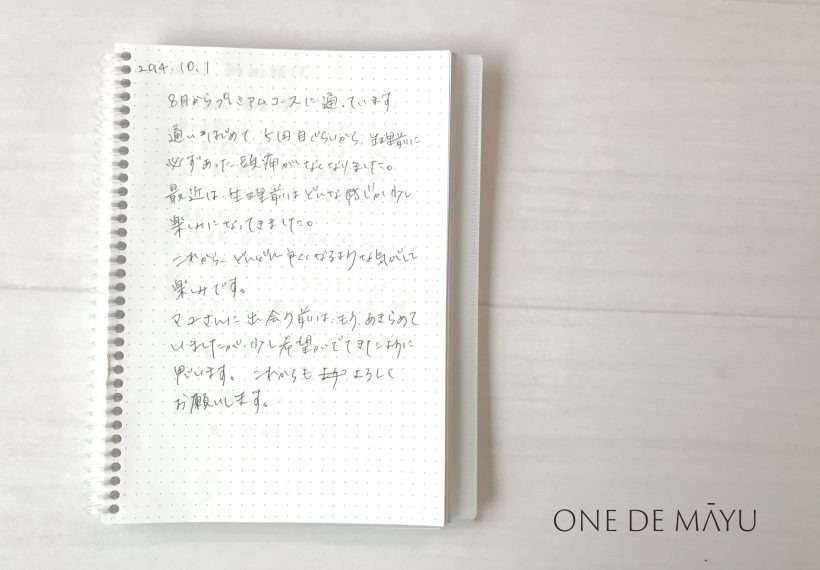 2014.10.1
8月からプレミアムコースに通っています
通いはじめて、5回目ぐらいから、生理前に
必ずあった頭痛がなくなりました。
最近は、生理前はどんな感じか少し
楽しみになってきました。
これから、どんどん良くなるような気がして
楽しみです。
マユさんに出会う前は、もう、あきらめて
いましたが、少し希望がでてきたように
思います。これからも よろしく
お願いします。
ONE DE MĀYU